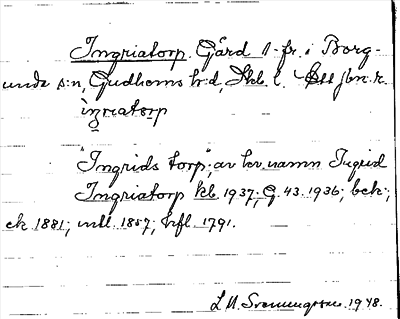 Ingriatorp. Gård 1-fr. i Borg-
unda s:n, Gudhems h:d, Skb. l.
ìŋriatɔrp
"Ingrids torp"; av kv.namn Ingrid
Ingriatorp kb. 1937; G. 43. 1936; bek.;
ek. 1881; mtl. 1857; hfl. 1791.
L. M. Svenungsson. 1948.